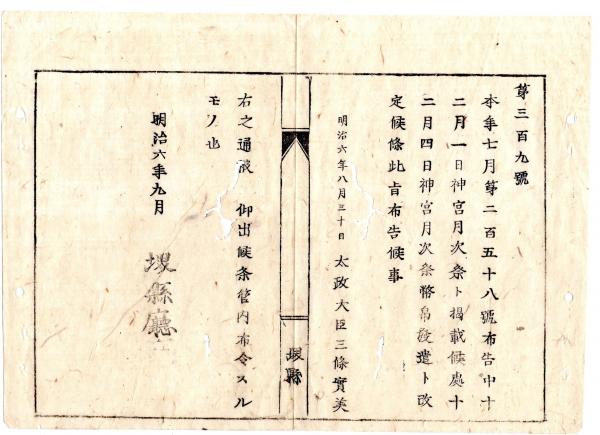 第三百九號
本年七月第二百五十八號布告中十
二月一日神宮月次祭ト揭載候處十
二月四日神宮月次祭幣帛發遣ト改
定候條此旨布告候事
明治六年八月三十日 太政大臣三條實美
堺縣
右之通被 仰出候条管内布令スル
モノ也
明治六年九月
堺縣廳